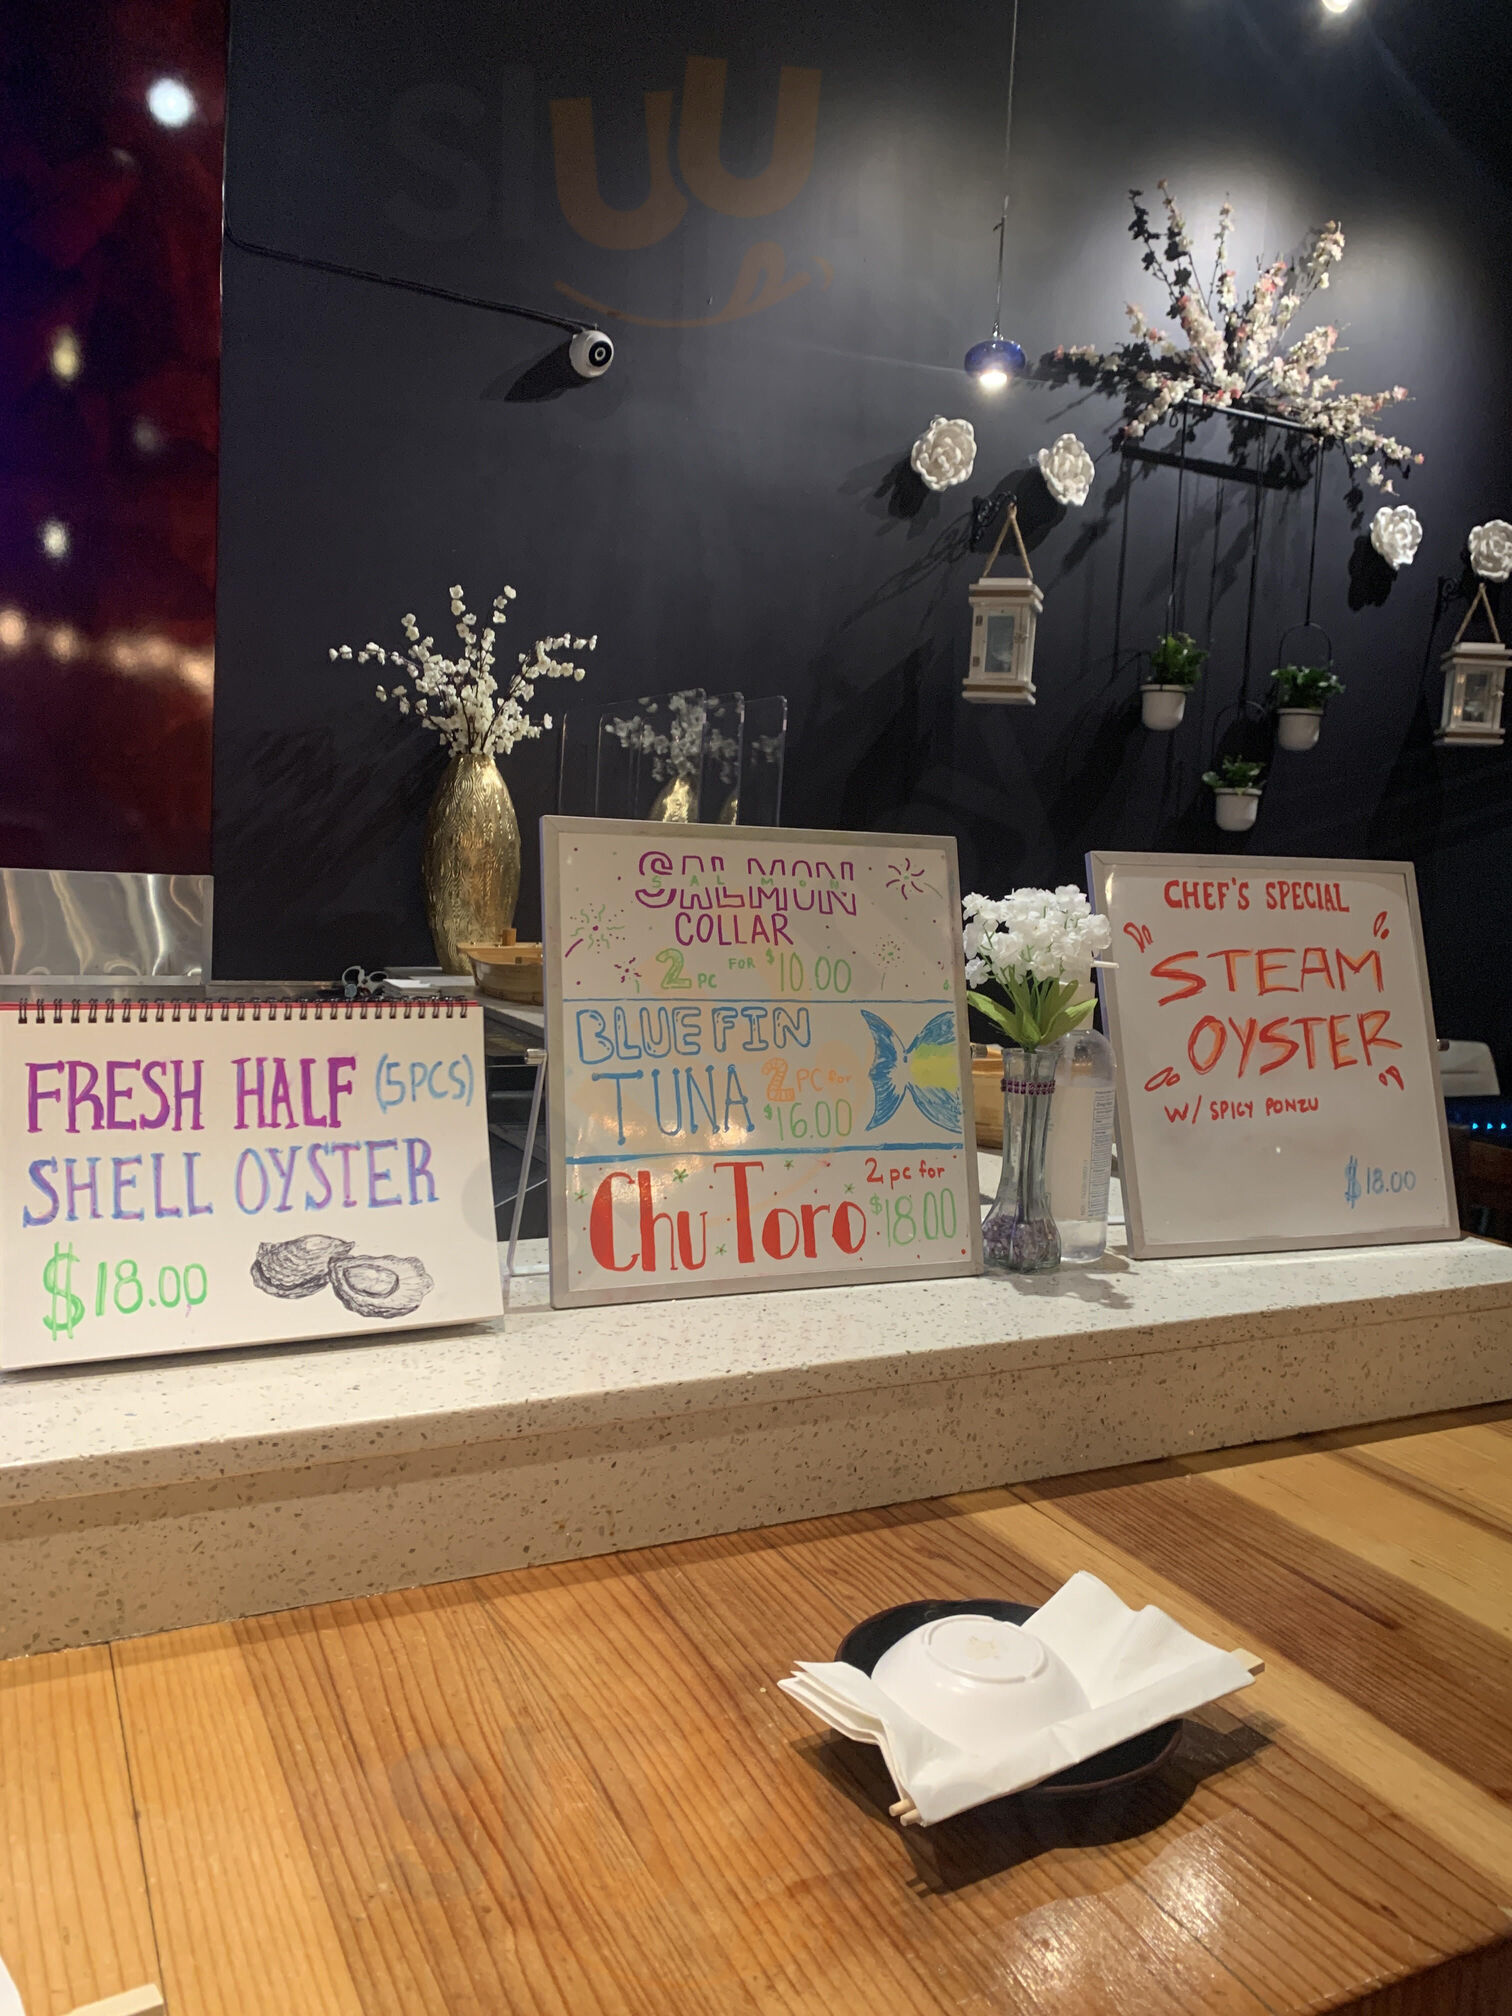 FRESH HALF (5PCS)
SHELL OYSTER
$18.00
SALMON
SALMON
COLLAR
2 PC FOR $10.00
BLUEFIN
TUNA 2 PC for
$16.00
Chu Toro 2 pc for
$18.00
CHEF'S SPECIAL
STEAM
OYSTER
W/ SPICY PONZU
$18.00